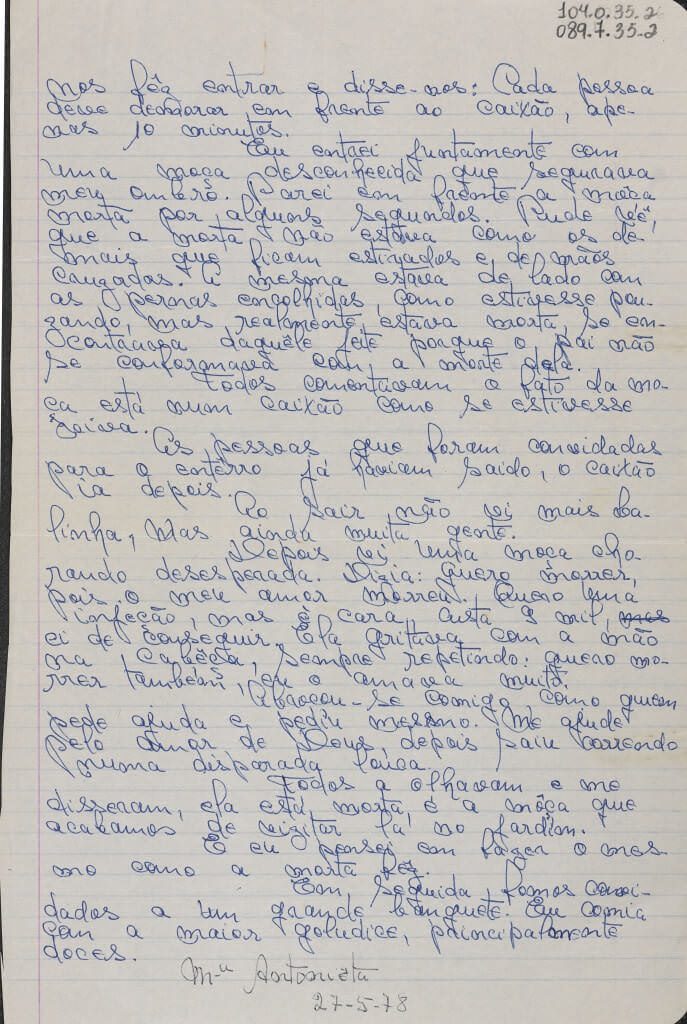 104.0.35.2
089.7.35-2
nos fêz entrar e disse-nos: Cada pessoa
deve demorar em frente ao caixão, ape-
nas 10 minutos.
Eu entrei juntamente com
uma moça desconhecida que segurava
meu ombro. Parei em frente a moça
morta por alguns segundos. Pude vê,
que a morta não estava como os de
mais que ficam estirados e de mãos
cruzadas. A mesma estava de lado com
as pernas encolhidas, como estivesse pou-
zando, mas realmente estava morta, se en-
contrava daquêle jeito porque o pai não
se conformava com a morte dela.
Todos comentavam o fato da mo-
ça está num caixão como se estivesse
As pessoas que foram convidadas
para o enterro já haviam saido, o caixão
ia depois.
Ao sair não vi mais ba-
linha, mas ainda muita gente.
Depois vi uma moça cho-
rando desesperada. Dizia: quero morrer,
pois o meu amor morreu. Quero uma
infeção, mas é cara, custa 9 mil, mas
ei de conseguir. Ela gritava com a mão
na cabêça, sempre repetindo: quero mo-
rrer tambem, eu o amava muito.
Abracou-se comigo, como quem
pede ajuda e pediu mesmo. Me ajude
pelo amor de Deus, depois saiu correndo
numa disparada louca.
Todos a olhavam e me
disseram, ela está morta, é a môça que
acabamos de vizitar lá no jardim.
E eu pensei em fazer o mes-
mo como a morta fêz.
Em seguida fomos convi-
dados a um grande banquete. Eu comia
com a maior gotudice, principalmente
doces.
Mª Antonieta
27-5-78